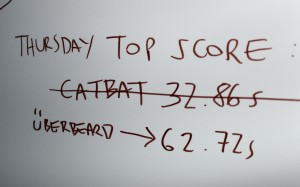 THURSDAY TOP SCORE :
CATBAT 32.86s
ÜBERBEARD → 62.72s